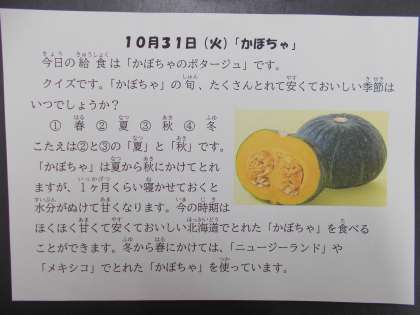 10月31日(火)「かぼちゃ」
今日の給食は「かぼちゃのポタージュ」です。
クイズです。「かぼちゃ」の旬、たくさんとれて安くておいしい季節は
いつでしょうか?
① 春 ② 夏 ③ 秋 ④ 冬
こたえは②と③の「夏」と「秋」です。
「かぼちゃ」は夏から秋にかけてとれ
ますが、1ヶ月くらい寝かせておくと
水分がぬけて甘くなります。今の時期は
ほくほく甘くて安くておいしい北海道でとれた「かぼちゃ」を食べる
ことができます。冬から春にかけては、「ニュージーランド」や
「メキシコ」でとれた「かぼちゃ」を使っています。